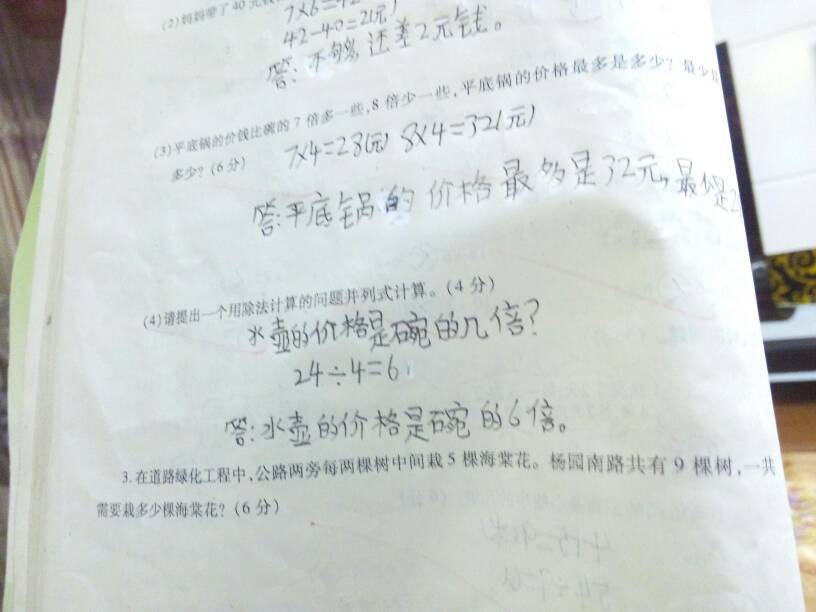 (2)妈妈带了40元
7×6=42
42-40=2(元)
答:不够还差2元钱。
(3)平底锅的价钱比碗的7倍多一些,8倍少一些,平底锅的价格最多是多少?最少是
多少?(6分)
7×4=28(元) 8×4=32(元)
答:平底锅的价格最多是32元,最少是2
(4)请提出一个用除法计算的问题并列式计算。(4分)
水壶的价格是碗的几倍?
24÷4=6
答:水壶的价格是碗的6倍。
3.在道路绿化工程中,公路两旁每两棵树中间栽5棵海棠花。杨园南路共有9棵树,一共
需要栽多少棵海棠花?(6分)